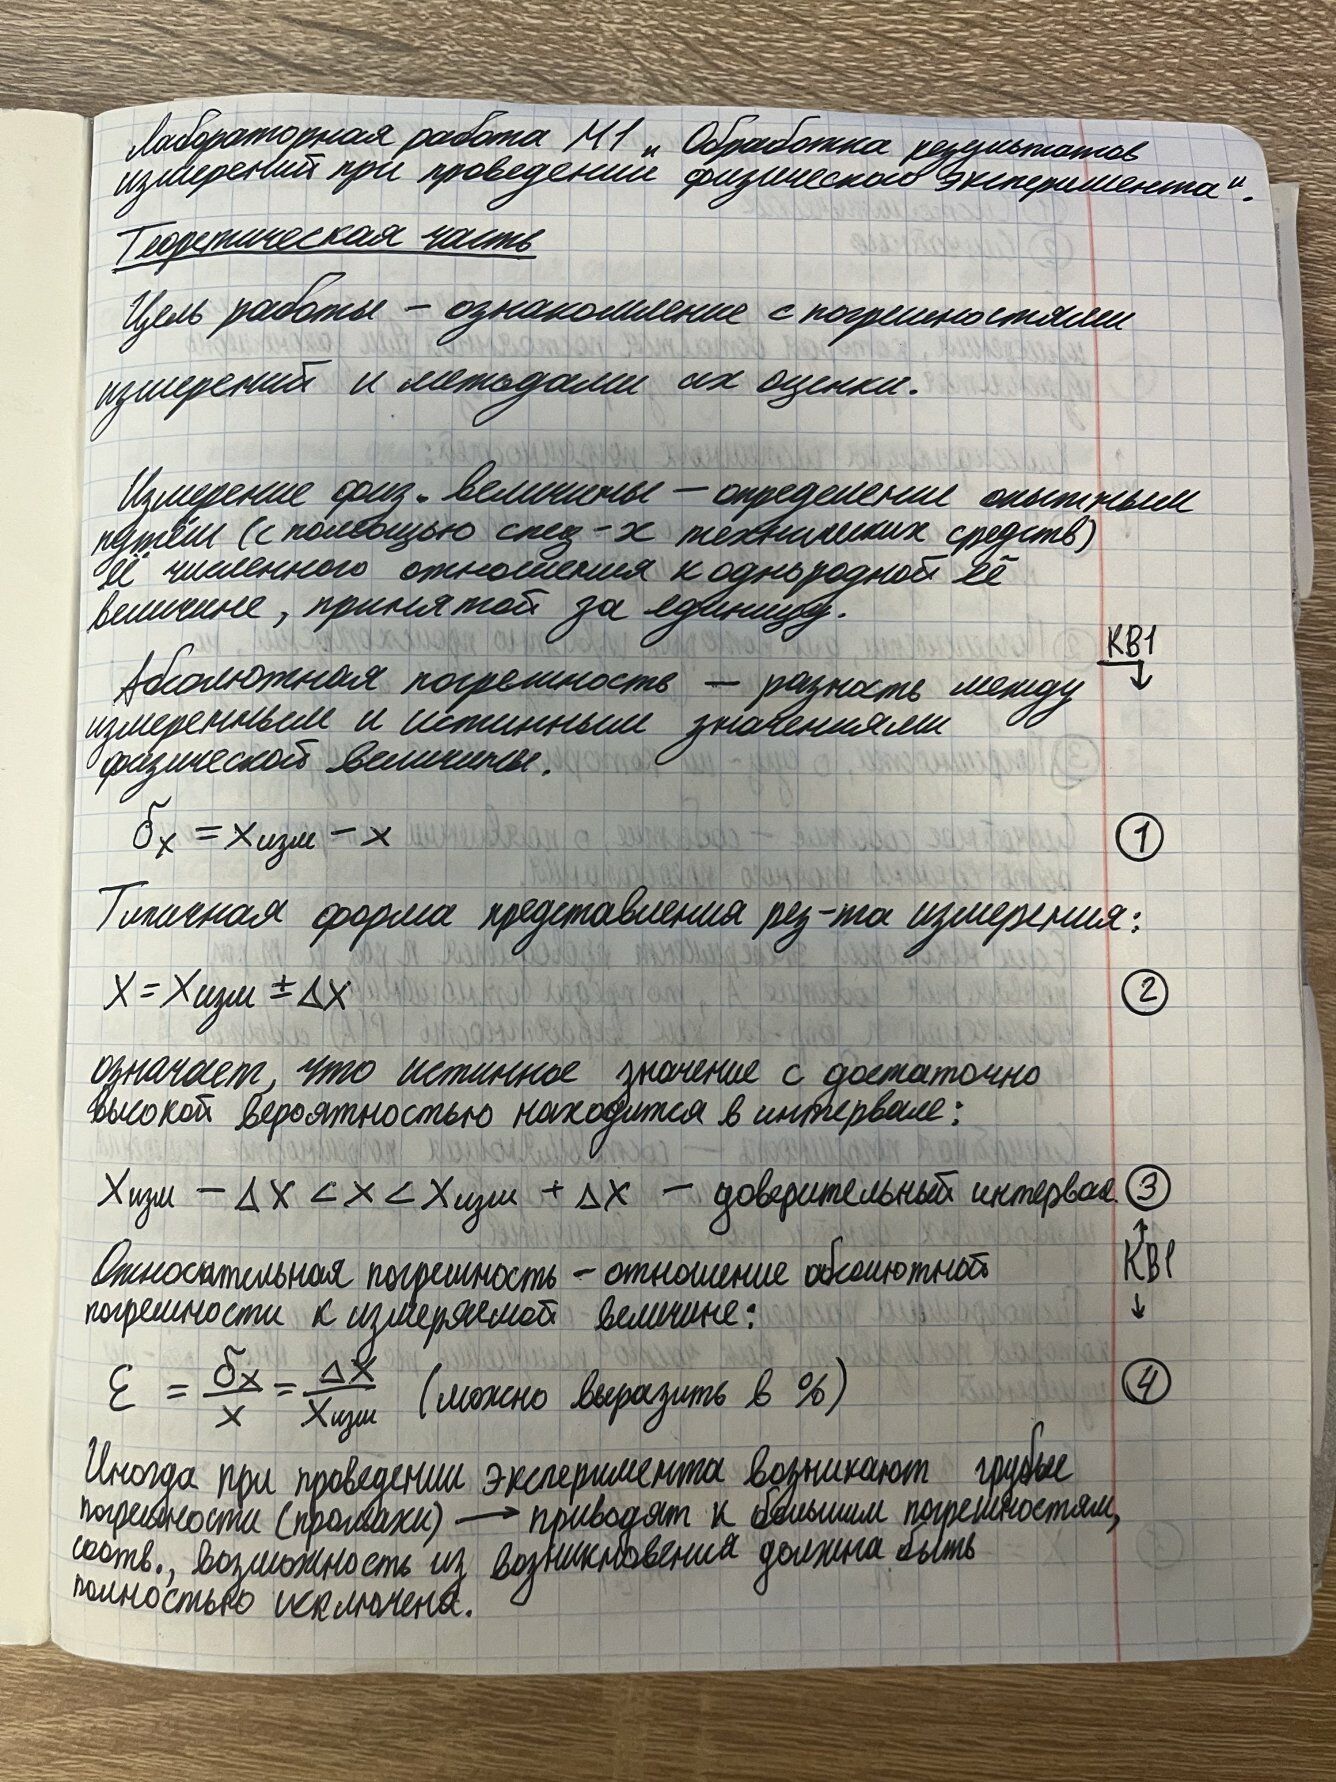 Лабораторная работа М1 „Обработка результатов
измерений при проведении физического эксперимента“.
Теоретическая часть
Цель работы – ознакомление с погрешностями
измерений и методами их оценки.
Измерение физ. величины – определение опытным
путём (с помощью спец-х технических средств)
её численного отношения к однородной ей
величине, принятой за единицу.
КВ1 ↓
Абсолютная погрешность – разность между
измеренным и истинным значениями
физической величины.
δx = xизм – x ①
Типичная форма представления рез-та измерения:
X = Xизм ± ΔX ②
означает, что истинное значение с достаточно
высокой вероятностью находится в интервале:
Xизм – ΔX < x < Xизм + ΔX – доверительный интервал ③
↑ КВ1 ↓
Относительная погрешность – отношение абсолютной
погрешности к измеряемой величине:
ε = δx/x = ΔX/Xизм (можно выразить в %) ④
Иногда при проведении эксперимента возникают грубые
погрешности (промахи) → приводят к большим погрешностям,
соотв., возможность из возникновения должна быть
полностью исключена.